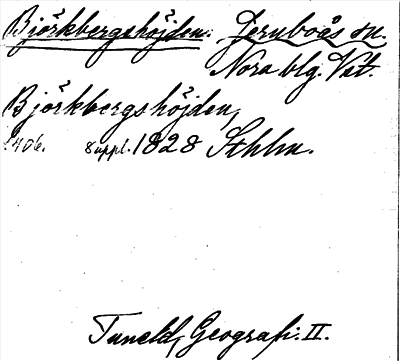 Björkbergshöjden. Järnboås sn.
Nora blg. Vst.
Björkbergshöjden,
s. 406. 8 uppl. 1828 Sthlm.
Tuneld, Geografi. II.